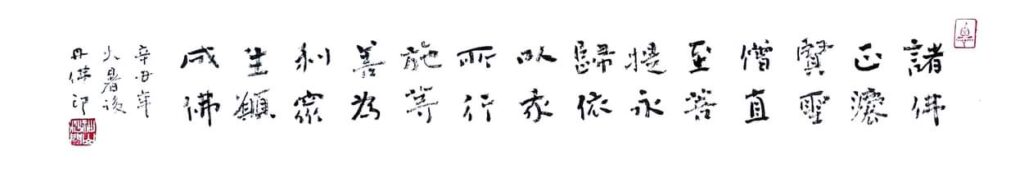 諸佛
正灋
賢聖
僧直
至菩
提永
歸依
以我
所行
施等
善為
利眾
生願
成佛
辛丑年
暑後